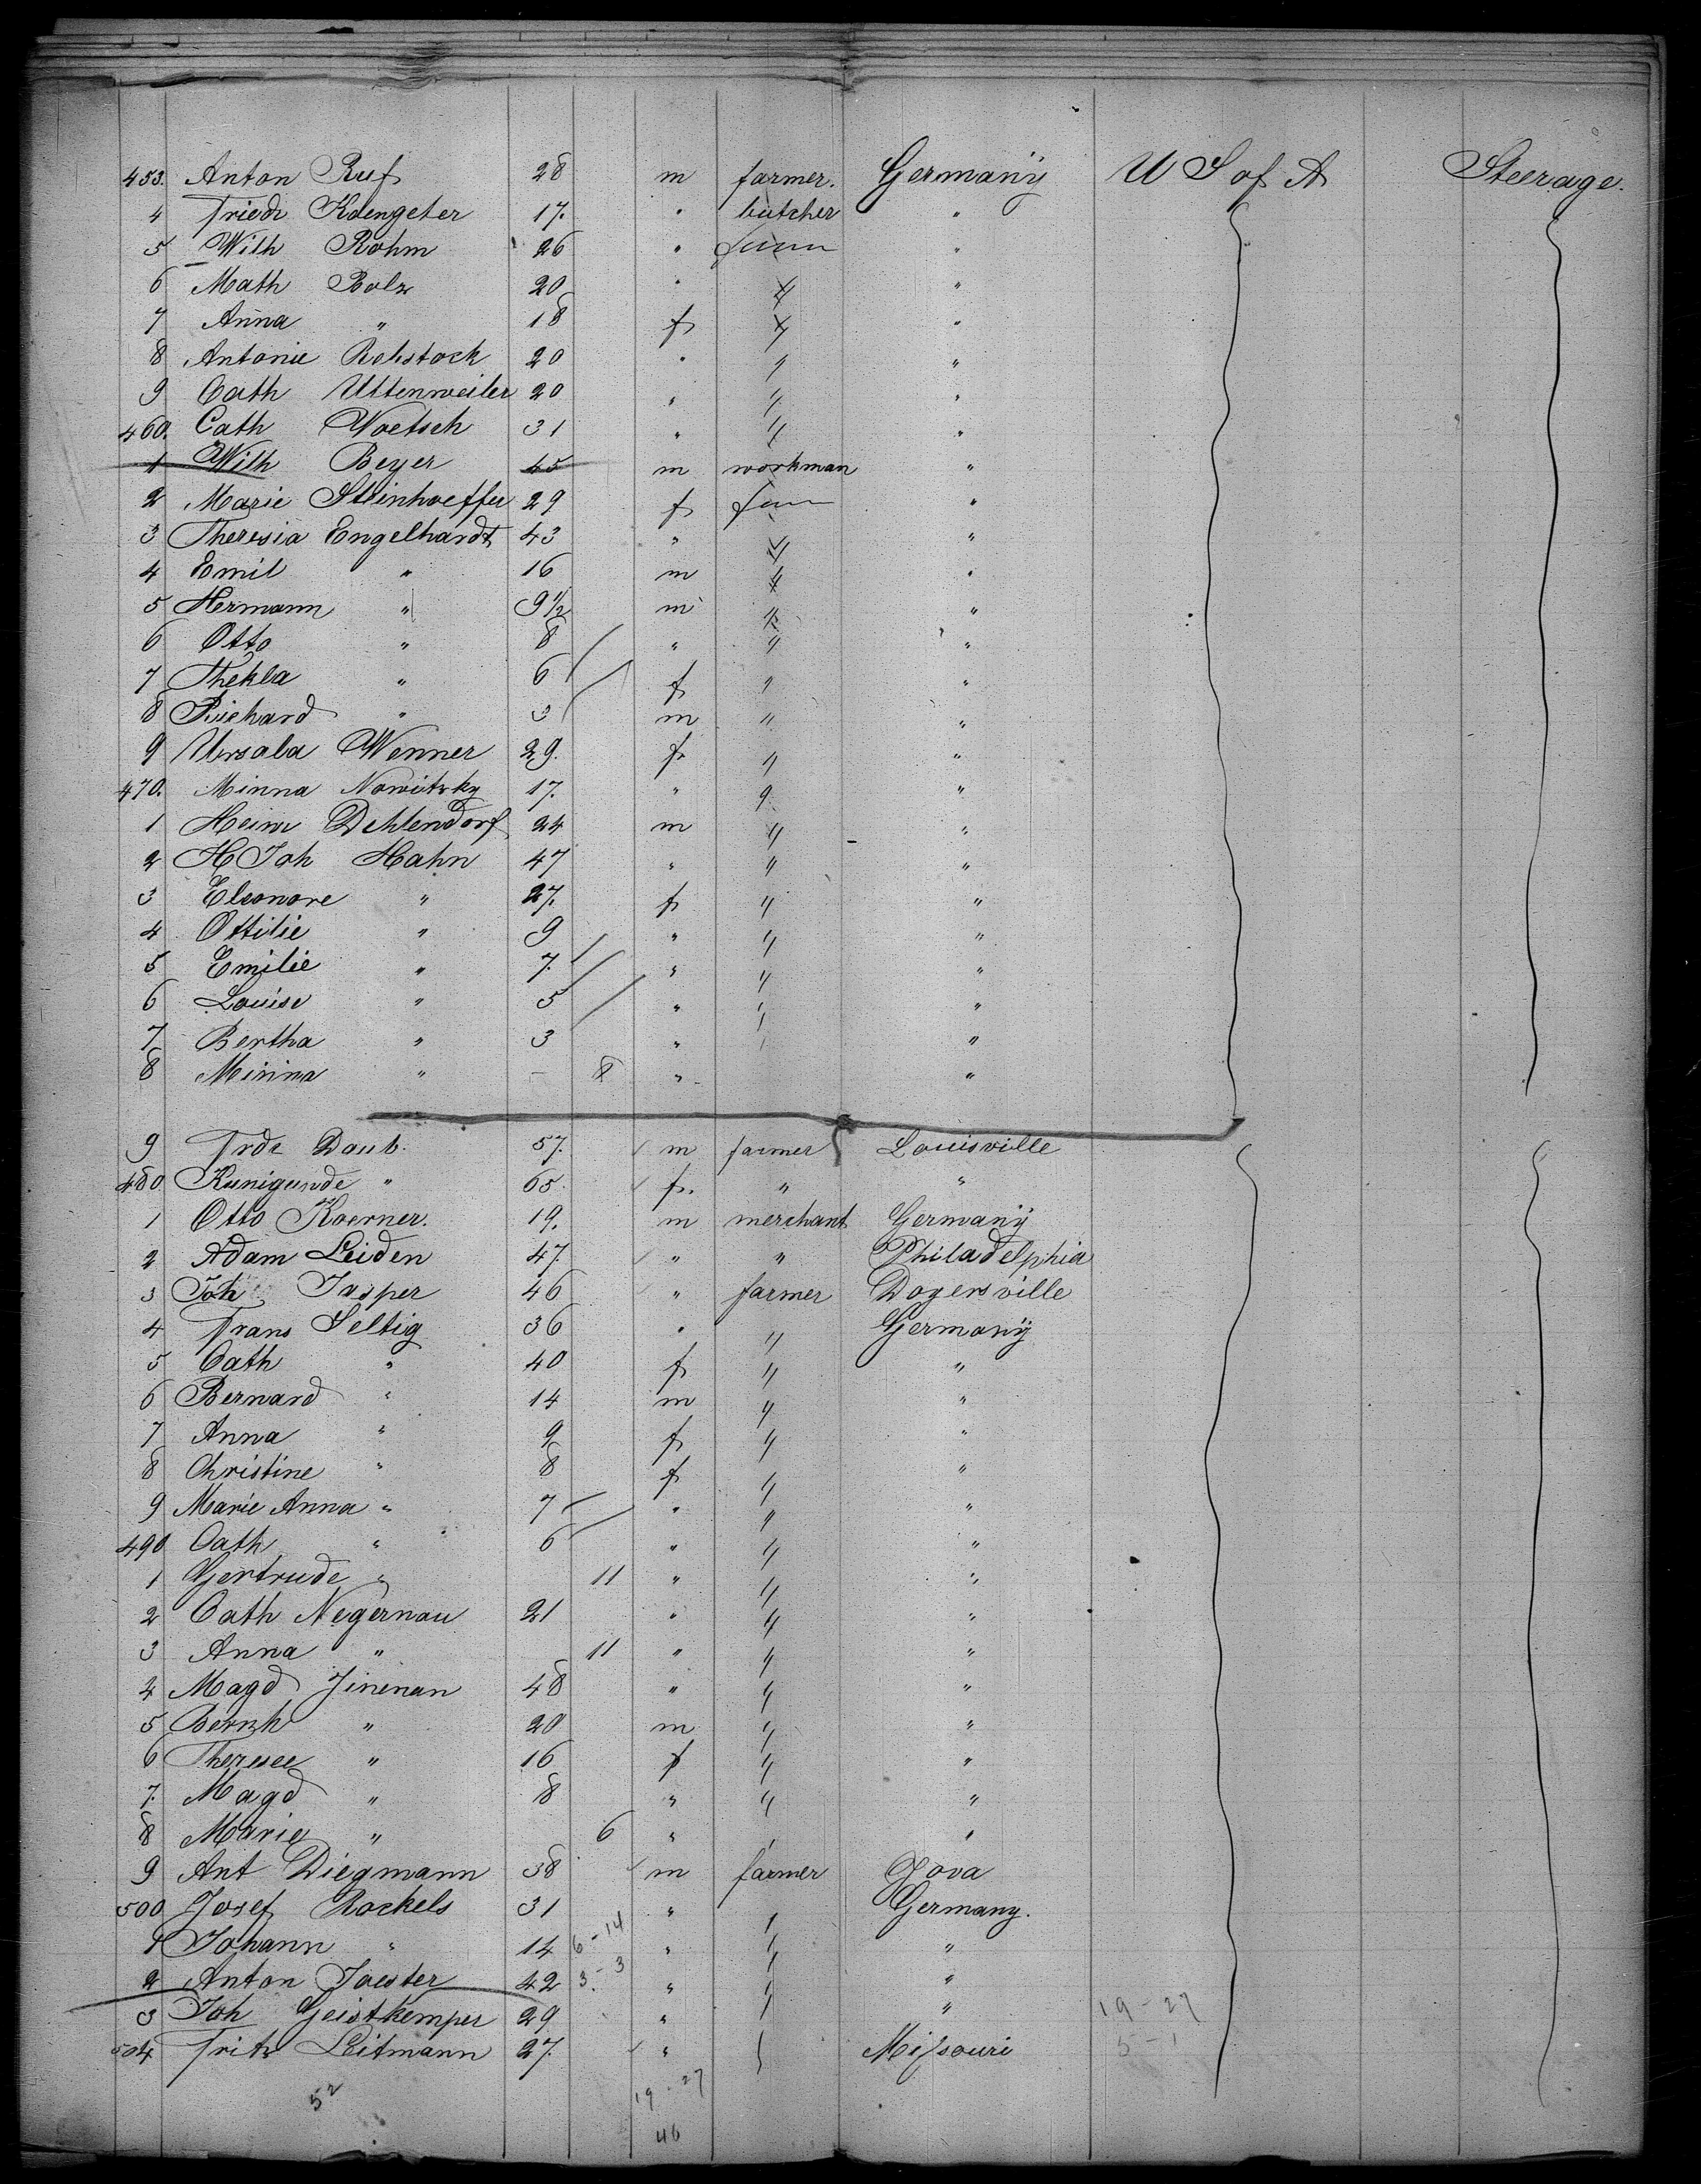 453. Anton Ruf 28 m farmer. Germany U S of A Steerage.
4 Friedr Kaengeter 17. " butcher "
5 Wilh Rohm 26 " farm "
6 Math Bolz 20 " " "
7 Anna " 18 f " "
8 Antonie Rebstock 20 " " "
9 Cath Uttenweiler 20 " " "
460. Cath Woetsch 31 " " "
1 Wilh Beyer 45 m workman "
2 Marie Steinhoeffer 29 f farm "
3 Theresia Engelhardt 43 " " "
4 Emil " 16 m " "
5 Hermann " 9 1/2 m " "
6 Otto " 8 " " "
7 Thekla " 6 f " "
8 Richard " 3 m " "
9 Ursala Wenner 29. f " "
470. Minna Nowitzky 17. " " "
1 Heinr Dehlendorf 24 m " "
2 H Joh Hahn 47 " " "
3 Eleonore " 27. f " "
4 Ottilie " 9 " " "
5 Emilie " 7. " " "
6 Louise " 5 " " "
7 Bertha " 3 " " "
8 Minna " - 8 " "
9 Frdr Daub. 57. m farmer Louisville
480 Kunigunde " 65. f. " "
1 Otto Koerner. 19. m merchant Germany
2 Adam Leiden 47. " " Philadelphia
3 Joh Jasper 46 " farmer Dogersville
4 Frans Seltig 36 " " Germany
5 Cath " 40 f " "
6 Bernard " 14 m " "
7 Anna " 9 f " "
8 Christine " 8 f " "
9 Marie Anna " 7 " " "
490 Cath " 6 " " "
1 Gertrude " 11 " " "
2 Cath Negernau 21 " " "
3 Anna " 11 " " "
4 Magd Jinenan 48 " " "
5 Bernh " 20 m " "
6 Theresee " 16 f " "
7. Magd " 8 " " "
8 Marie " 6 " " "
9 Ant Diegmann 38 m farmer Jova
500 Josef Rockels 31 " " Germany.
1 Johann " 14 6-14 " " "
2 Anton Joester 42 3-3 " " "
3 Joh Geistkemper 29 " " " 19-27
504 Fritz Leitmann 27. " " Missouri 5-1
52 19-27
46